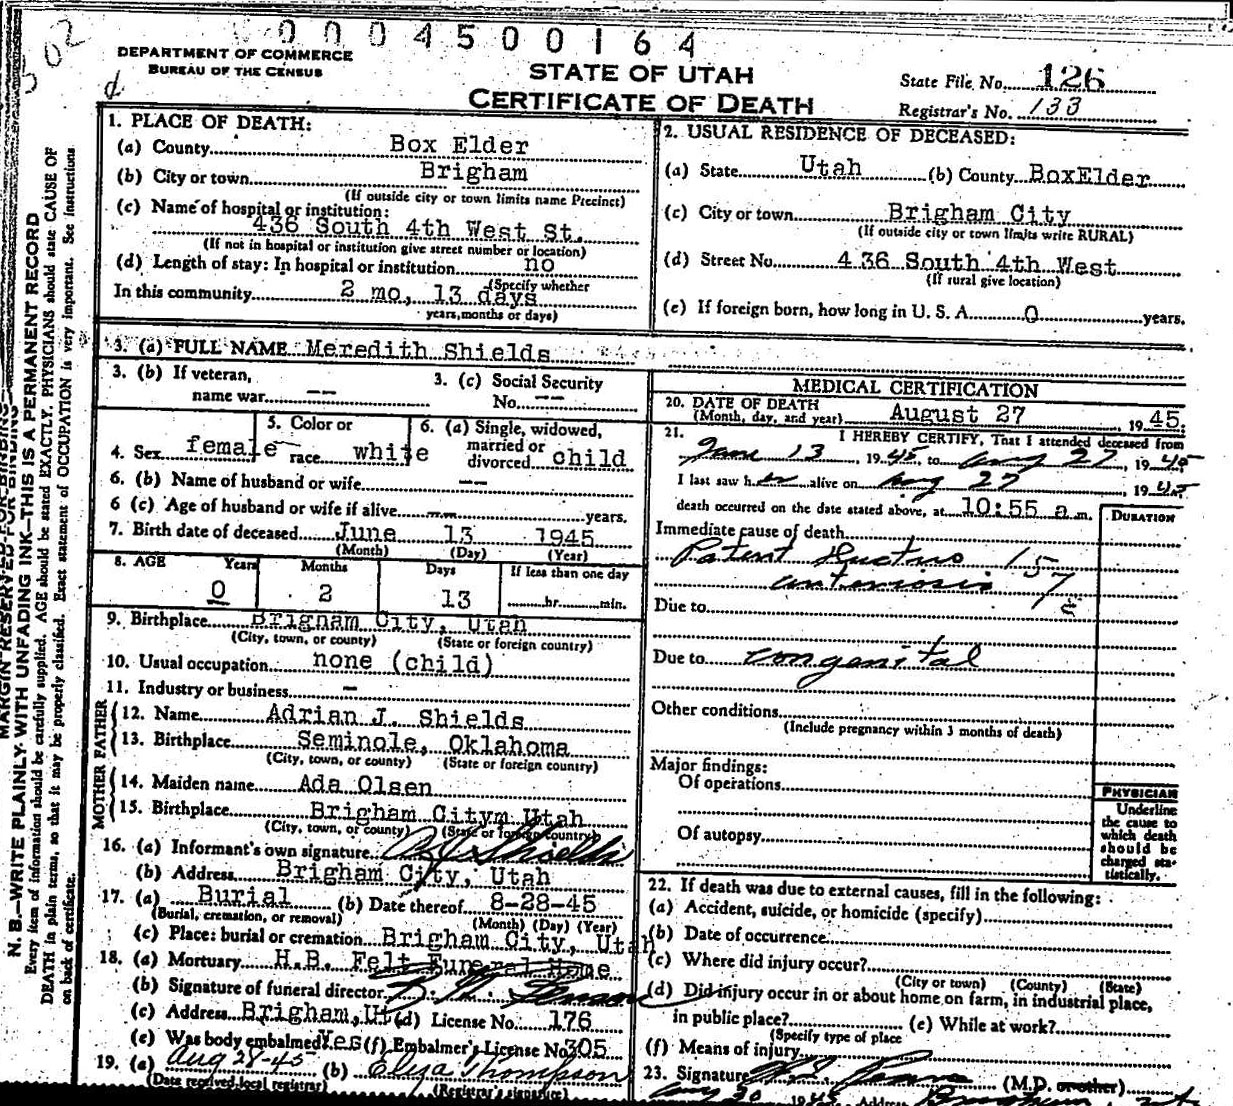 0004500164
502
DEPARTMENT OF COMMERCE
BUREAU OF THE CENSUS
STATE OF UTAH
CERTIFICATE OF DEATH
State File No. 126
Registrar's No. 133
MARGIN RESERVED FOR BINDING
N. B.—WRITE PLAINLY WITH UNFADING INK—THIS IS A PERMANENT RECORD
Every item of information should be carefully supplied. AGE should be stated EXACTLY. PHYSICIANS should state CAUSE OF
DEATH in plain terms, so that it may be properly classified. Exact statement of OCCUPATION is very important. See instructions
on back of certificate.
1. PLACE OF DEATH:
(a) County Box Elder
(b) City or town Brigham
(If outside city or town limits name Precinct)
(c) Name of hospital or institution:
436 South 4th West St.
(If not in hospital or institution give street number or location)
(d) Length of stay: In hospital or institution no
(Specify whether
In this community 2 mo, 13 days
years, months or days)
2. USUAL RESIDENCE OF DECEASED:
(a) State Utah (b) County BoxElder
(c) City or town Brigham City
(If outside city or town limits write RURAL)
(d) Street No. 436 South 4th West
(If rural give location)
(e) If foreign born, how long in U. S. A. 0 years.
3. (a) FULL NAME Meredith Shields
3. (b) If veteran,
name war --
3. (c) Social Security
No. --
4. Sex female
5. Color or
race white
6. (a) Single, widowed,
married or
divorced child
6. (b) Name of husband or wife --
6 (c) Age of husband or wife if alive -- years.
7. Birth date of deceased June 13 1945
(Month) (Day) (Year)
8. AGE Years Months Days If less than one day
0 2 13 hr. min.
9. Birthplace Brigham City, Utah
(City, town, or county) (State or foreign country)
10. Usual occupation none (child)
11. Industry or business -
FATHER
12. Name Adrian J. Shields
13. Birthplace Seminole, Oklahoma
(City, town, or county) (State or foreign country)
MOTHER
14. Maiden name Ada Olsen
15. Birthplace Brigham Citym Utah
(City, town, or county) (State or foreign country)
16. (a) Informant's own signature A J Shields
(b) Address Brigham City, Utah
17. (a) Burial (b) Date thereof 8-28-45
(Burial, cremation, or removal) (Month) (Day) (Year)
(c) Place: burial or cremation Brigham City, Utah
18. (a) Mortuary H.B. Felt Funeral Home
(b) Signature of funeral director
(c) Address Brigham, Ut (d) License No. 176
(e) Was body embalmed Yes (f) Embalmer's License No 305
19. (a) Aug 28-45 (b) Eliza Thompson
(Date received local registrar) (Registrar's signature)
MEDICAL CERTIFICATION
20. DATE OF DEATH
(Month, day, and year) August 27 1945.
21. I HEREBY CERTIFY, That I attended deceased from
June 13, 1945, to Aug 27, 1945
I last saw her alive on Aug 27, 1945
death occurred on the date stated above, at 10:55 a m.
DURATION
Immediate cause of death
Patent ductus 157
E
Due to
Due to congenital
Other conditions
(Include pregnancy within 3 months of death)
Major findings:
Of operations
Of autopsy
PHYSICIAN
Underline
the cause to
which death
should be
charged sta-
tistically.
22. If death was due to external causes, fill in the following:
(a) Accident, suicide, or homicide (specify)
(b) Date of occurrence
(c) Where did injury occur?
(City or town) (County) (State)
(d) Did injury occur in or about home, on farm, in industrial place,
in public place? (e) While at work?
(Specify type of place
(f) Means of injury
23. Signature (M.D. or other)
Aug 30 1945 Address